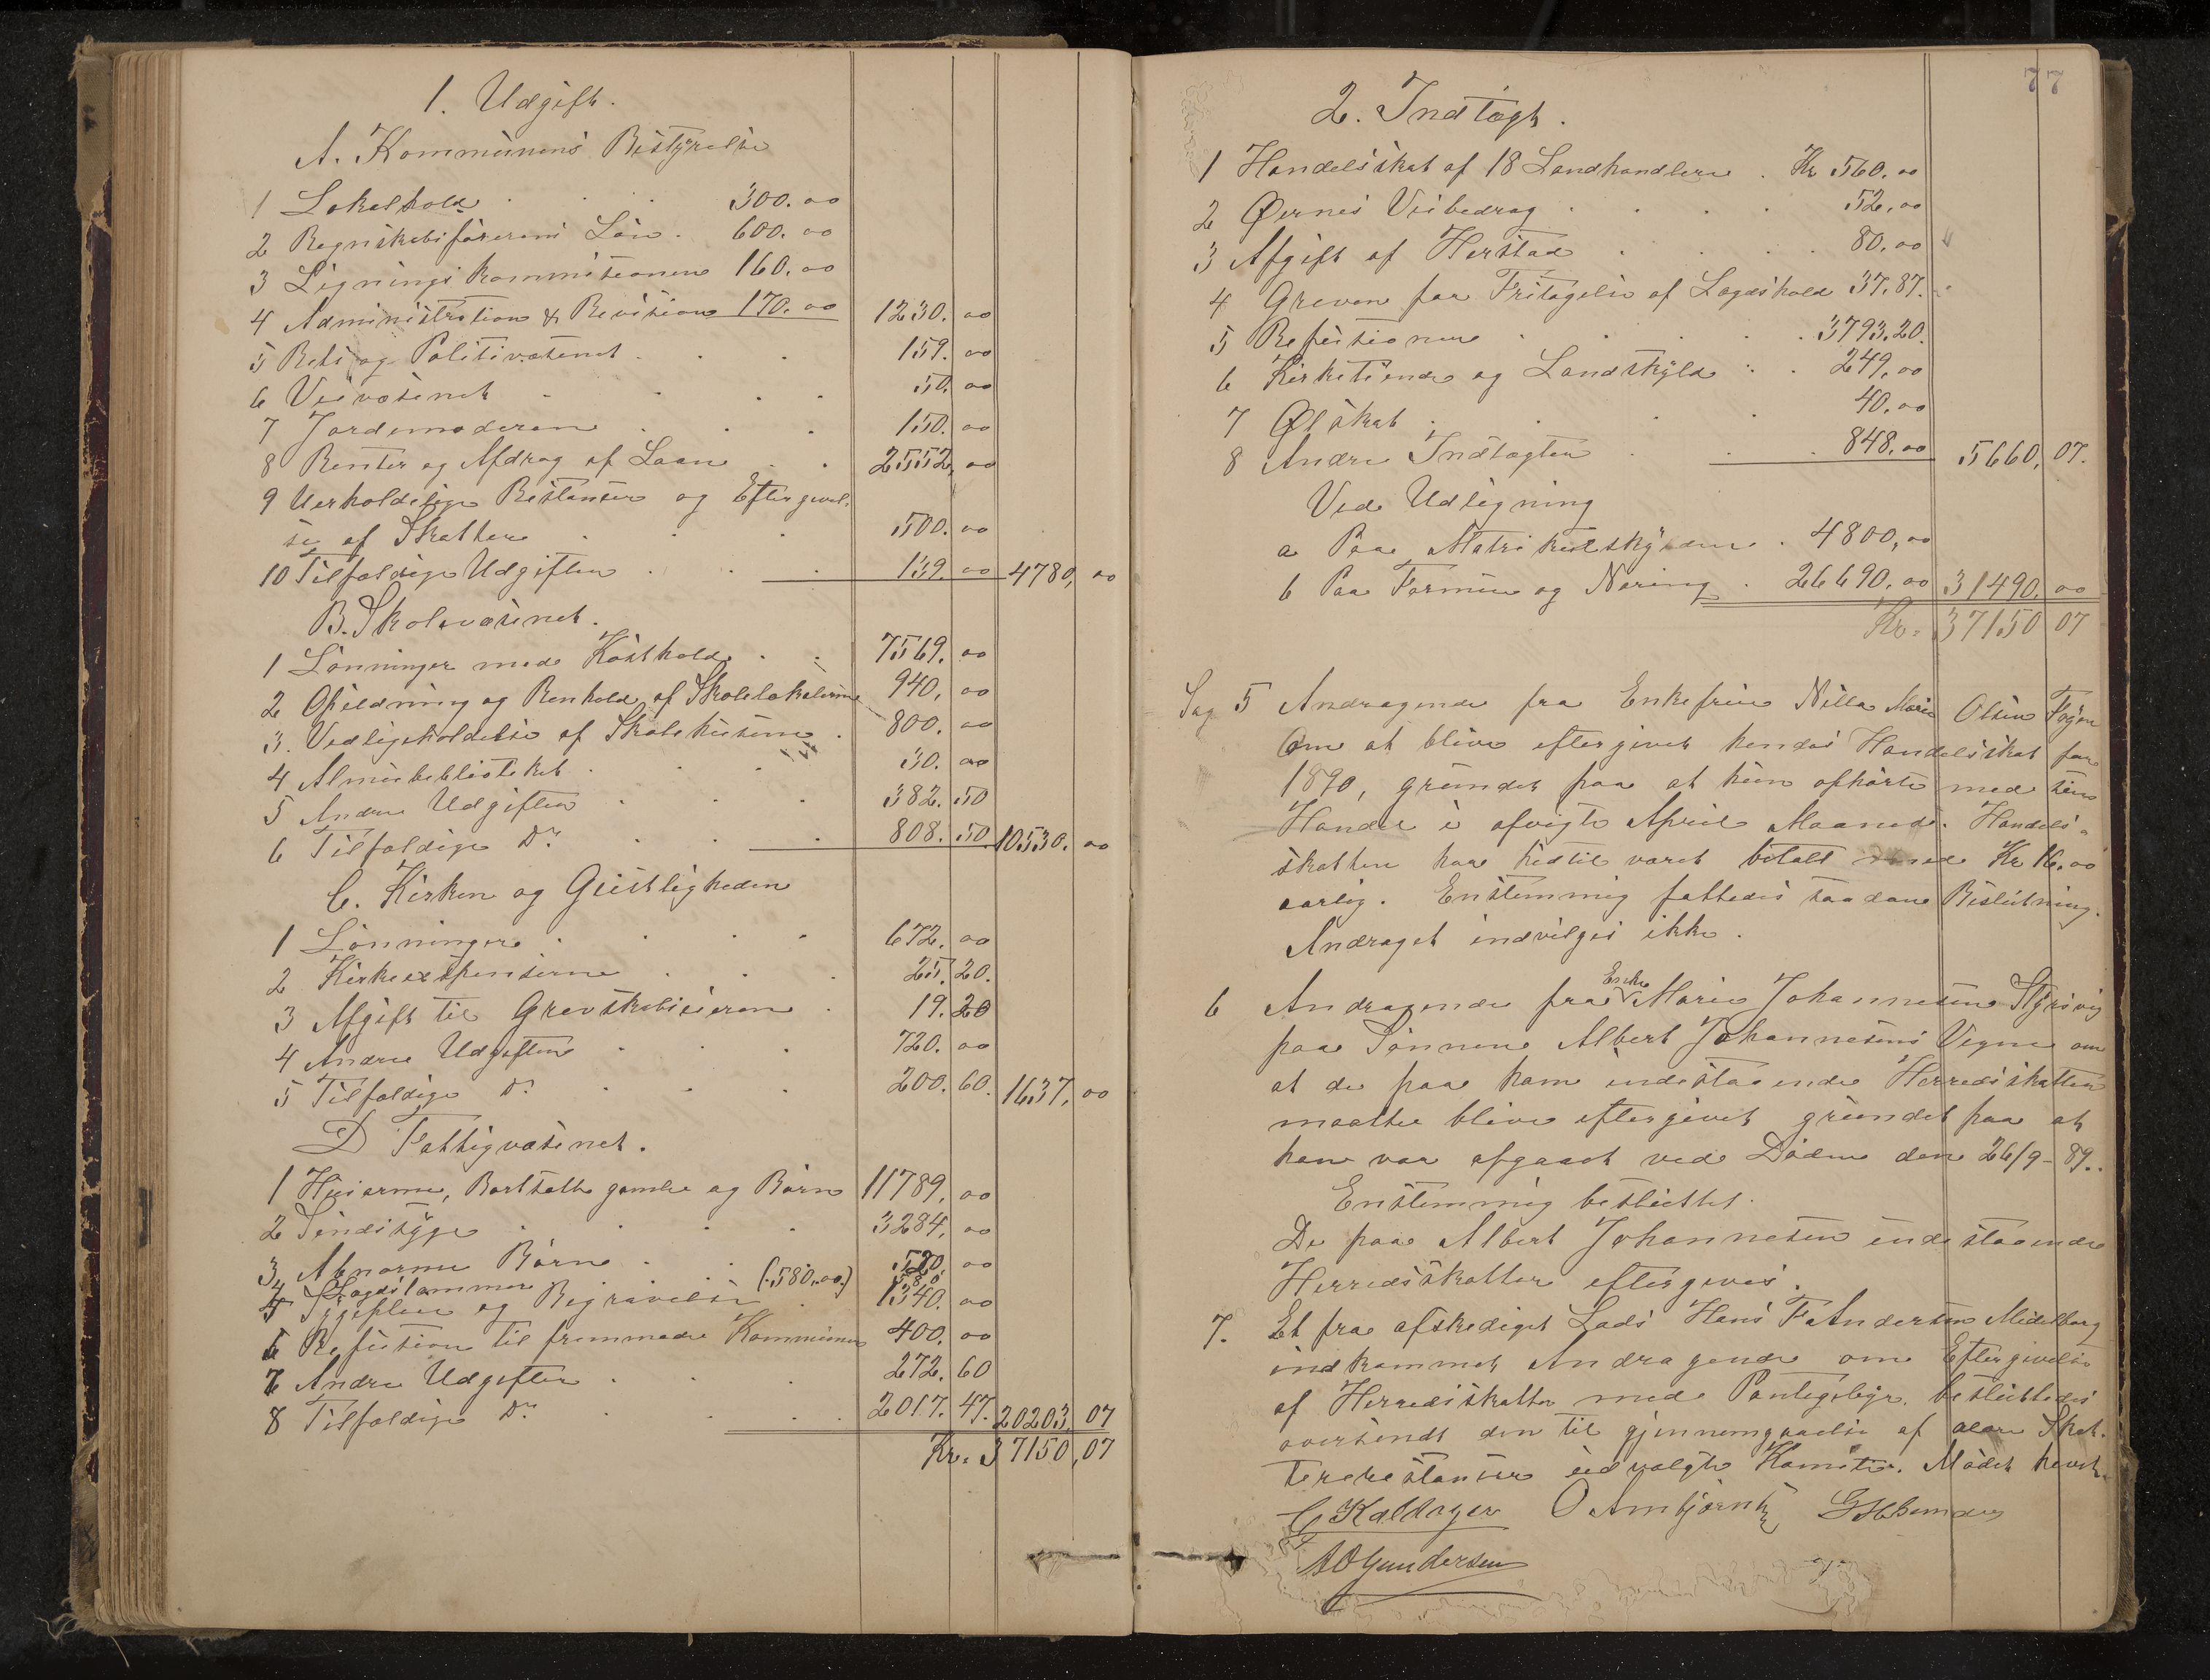 1. Udgift.
A. Kommunens Bestyrelse
1 Lokalhold . . . 300.00
2 Regnskabsførerens Løn . 600.00
3 Ligningskommisionen 160.00
4 Administration & Revision 170.00 1230.00
5 Rets og Politivæsenet . . . 159.00
6 Veivæsenet . . . . 50.00
7 Jordemoderen . . . 150.00
8 Renter og Afdrag af Laan . . 2552,00
9 Uerholdelige Restanser og Eftergivel-
se af Skatter . . . 500.00
10 Tilfældige Udgifter . . . 139.00 4780,00
B. Skolevæsenet.
1 Lønninger med Kosthold . . 7569.00
2 Opildning og Renhold af Skolelokalerne 940,00
3. Vedligeholdelse af Skolehusene . 800.00
4 Almuebiblioteket . . . 30.00
5 Andre Udgifter . . . 382.50
6 Tilfældige Do . . . 808.50. 10530.00
C. Kirken og Geistligheden
1 Lønninger . . . . 672.00
2 Kirkeexspenserne . . . 25.20.
3 Afgift til Grevskabseieren . 19.20
4 Andre Udgifter . . . 720.00
5 Tilfældige Do . . . 200.60. 1637,00
D Fattigvæsenet.
1 Husarme, Bortsatte gamle og Børn 11789,00
2 Sindssyge . . . . 3284,00
3 Abnorme Børn . . . 520.00
4 Lægdslemmer (580.00.) 580.
5 Sygepleie og Begravelse . 1340.00
6 Refusion til fremmede Kommuner 400.00
7 Andre Udgifter . . . 272.60
8 Tilfældige Do . . . . 2017.47. 20203.07
Kr. 37150,07
77
2. Indtægt.
1 Handelsskat af 18 Landhandlere . Kr 560.00
2 Øernes Veibedrag . . . . 52,00
3 Afgift af Herstad . . . . 80,00
4 Greven for Fritagelse af Lægdshold 37.87.
5 Refusioner . . . . . 3793.20.
6 Kirketiende og Landskyld . . 249,00
7 Ølskat . . . . 40.00
8 Andre Indtægter . . . 848,00 5660,07.
Ved Udligning
a Paa Matrikulskylden . 4800,00
b Paa Formue og Næring . 26690.00 31490.00
Kr. 37150 07
Sag 5 Andragende fra Enkefrue Nilla Marie Olsen Føyen
Om at blive eftergivet hendes Handelsskat for
1890, grundet paa at hun ophørte med sin
Handel i afvigte April Maaned. Handels-
skatten har hidtil været betalt med Kr 16.00
aarlig. Enstemmig fattedes saadan Beslutning.
Andraget indvilges ikke.
6 Andragende fra Enke Marie Johannesen Styrsvig
paa Sønnen Albert Johannesens Vegne om
at de paa ham indestaaende Herredsskatter
maatte blive eftergivet grundet paa at
han var afgaaet ved Døden den 26/9-89.
Enstemmig besluttet.
De paa Albert Johannesen indestaaende
Herredsskatter eftergives.
7. Et fra afskediget Lods Hans F Andersen Midelborg
indkommet Andragende om Eftergivelse
af Herredsskatter med Pantegebyr. besluttedes
oversendt den til gjennemgaaelse af ældre Skat-
terestanser udvalgte Komite. Mødet hævet.
C Kaldager O Ambjørnsen G H
A O Gundersen